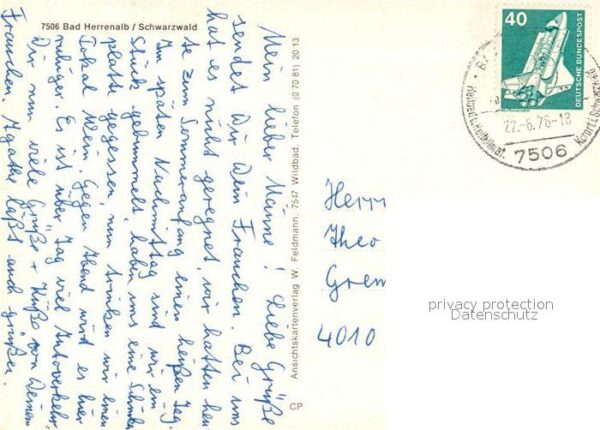 7506 Bad Herrenalb / Schwarzwald
Mein lieber Männe! Liebe Grüße
sendet Dir Dein Frauchen. Bei uns
hat es nicht geregnet, wir hatten heu
te zum Sommeranfang einen heißen Tag.
Im späten Nachmittag sind wir ein
Stück gebummelt, haben uns eine Schinken
platte gegessen, nun trinken wir einen
Pokal Wein. Gegen Abend wird es hier
ruhiger. Es ist über Tag viel Autoverkehr.
Dir nun viele Grüße + Küße von Deinem
Frauchen. Agathe läßt auch grüßen.
Ansichtskartenverlag W. Feldmann, 7547 Wildbad. Telefon (0 70 81) 20 13
CP
40
DEUTSCHE BUNDESPOST
22.-6.76-18
7506
Herrn
Theo
Grem
4010
privacy protection
Datenschutz